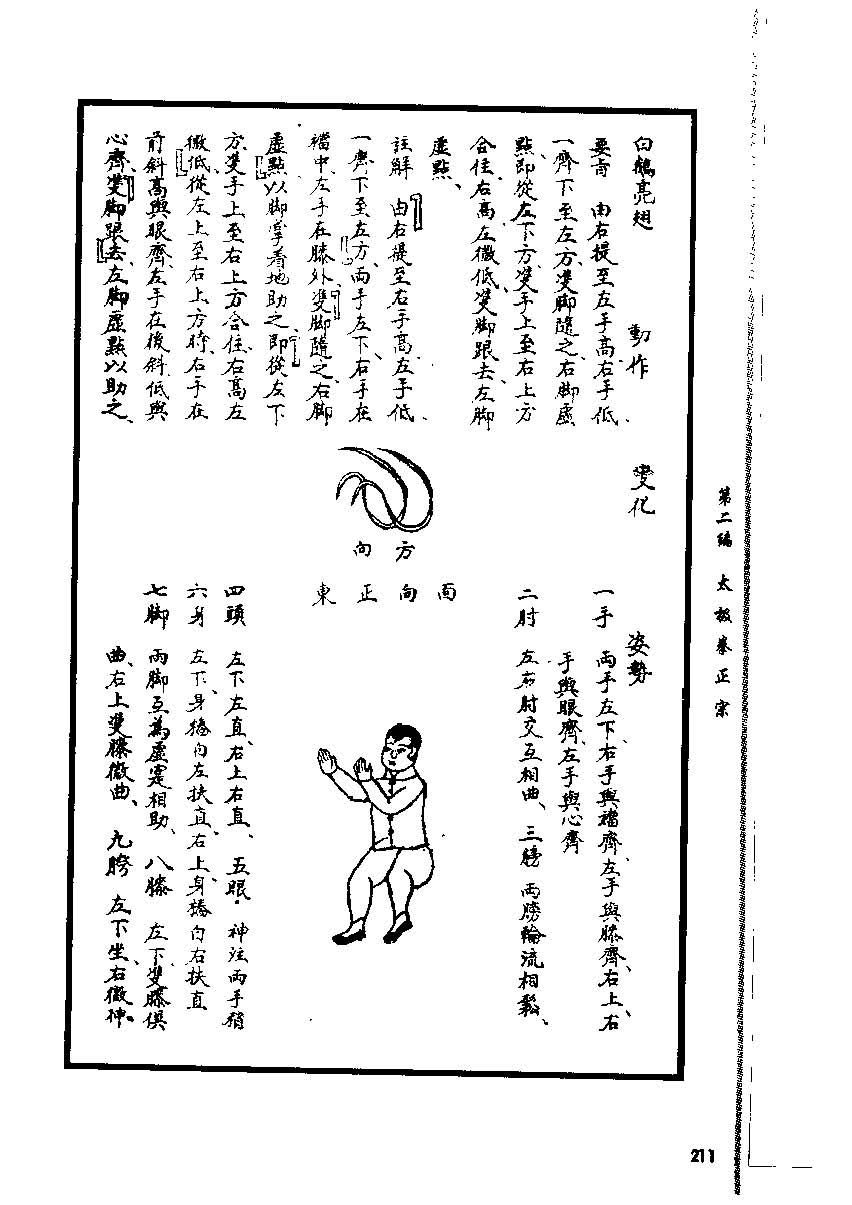 白鶴亮翅
動作
要言 由右提至左手高、右手低、
一齊下至左方、雙脚隨之、右脚虛
點、即從左下方、雙手上至右上方
合住、右高左微低、雙脚跟去、左脚
虛點、
註解 由右提至右手高、左手低、
一齊下至左方、兩手左下、右手在
襠中、左手在膝外、雙脚隨之、右脚
虛點、以脚掌着地助之、即從左下
方、雙手上至右上方合住、右高左
微低、從左上至右上方時、右手在
前斜高與眼齊、左手在後斜低與
心齊、雙脚跟去、左脚虛點以助之、
變化
向方
東正向面
姿勢
一手 兩手左下、右手與襠齊、左手與膝齊、右上、右
手與眼齊、左手與心齊
二肘 左右肘交互相曲、三膀 兩膀輪流相鬆、
四頭 左下左直、右上右直、五眼 神注兩手稍
六身 左下、身椿向左扶直、右上、身椿向右扶直
七脚 兩脚互為虛寔相助、八膝 左下、雙膝俱
曲、右上雙膝微曲、九胯 左下坐、右微伸。
第二編 太极拳正宗
211